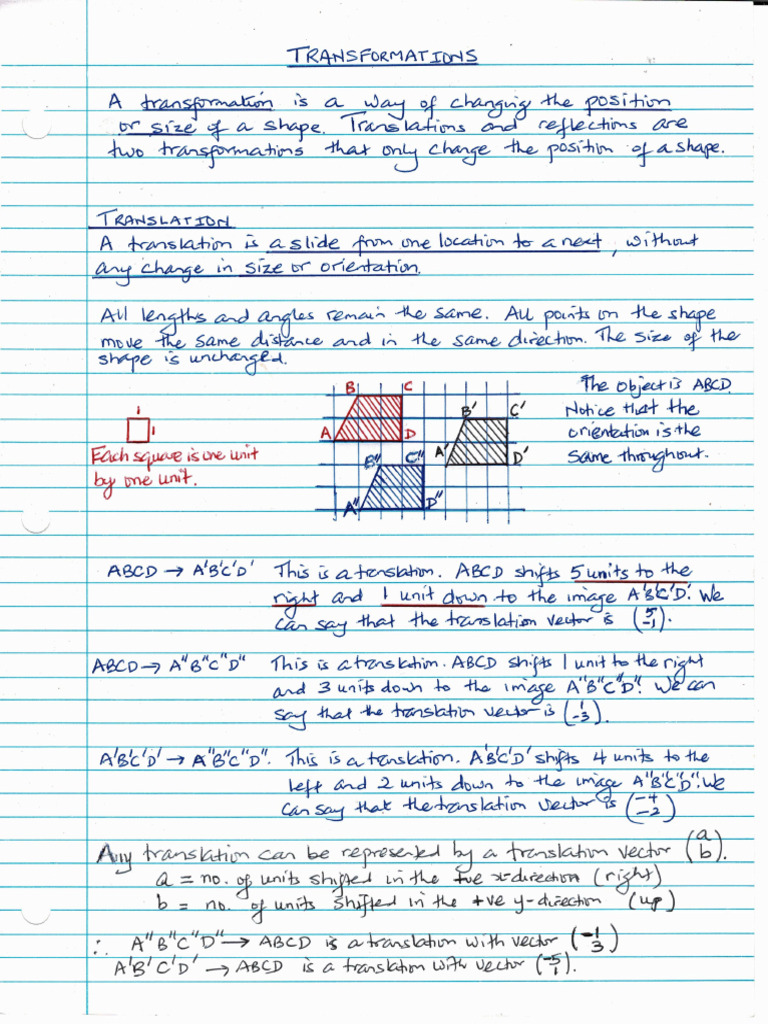 TRANSFORMATIONS
A transformation is a way of changing the position
or size of a shape. Translations and reflections are
two transformations that only change the position of a shape.
TRANSLATION
A translation is a slide from one location to a next, without
any change in size or orientation.
All lengths and angles remain the same. All points on the shape
move the same distance and in the same direction. The size of the
shape is unchanged.
1
1
Each square is one unit
by one unit.
B C
A D
B' C'
A' D'
B" C"
A" D"
The object is ABCD.
Notice that the
orientation is the
same throughout.
ABCD → A'B'C'D' This is a translation. ABCD shifts 5 units to the
right and 1 unit down to the image A'B'C'D'. We
can say that the translation vector is (5 -1).
ABCD → A"B"C"D" This is a translation. ABCD shifts 1 unit to the right
and 3 units down to the image A"B"C"D". We can
say that the translation vector is (1 -3).
A'B'C'D' → A"B"C"D". This is a translation. A'B'C'D' shifts 4 units to the
left and 2 units down to the image A"B"C"D". We
can say that the translation vector is (-4 -2)
Any translation can be represented by a translation vector (a b).
a = no. of units shifted in the +ve x-direction (right)
b = no. of units shifted in the +ve y-direction (up)
∴ A"B"C"D" → ABCD is a translation with vector (-1 3)
A'B'C'D' → ABCD is a translation with vector (-5 1).